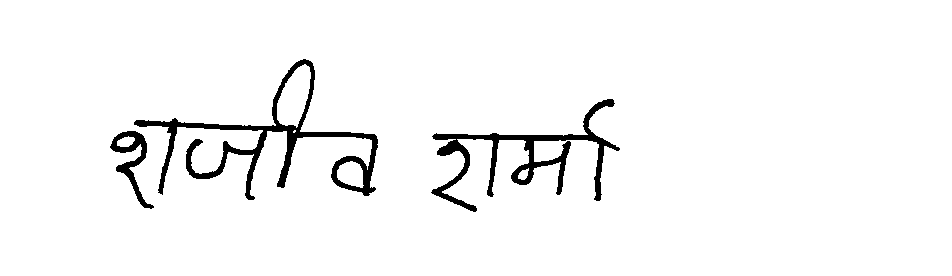 शजीव शर्मा